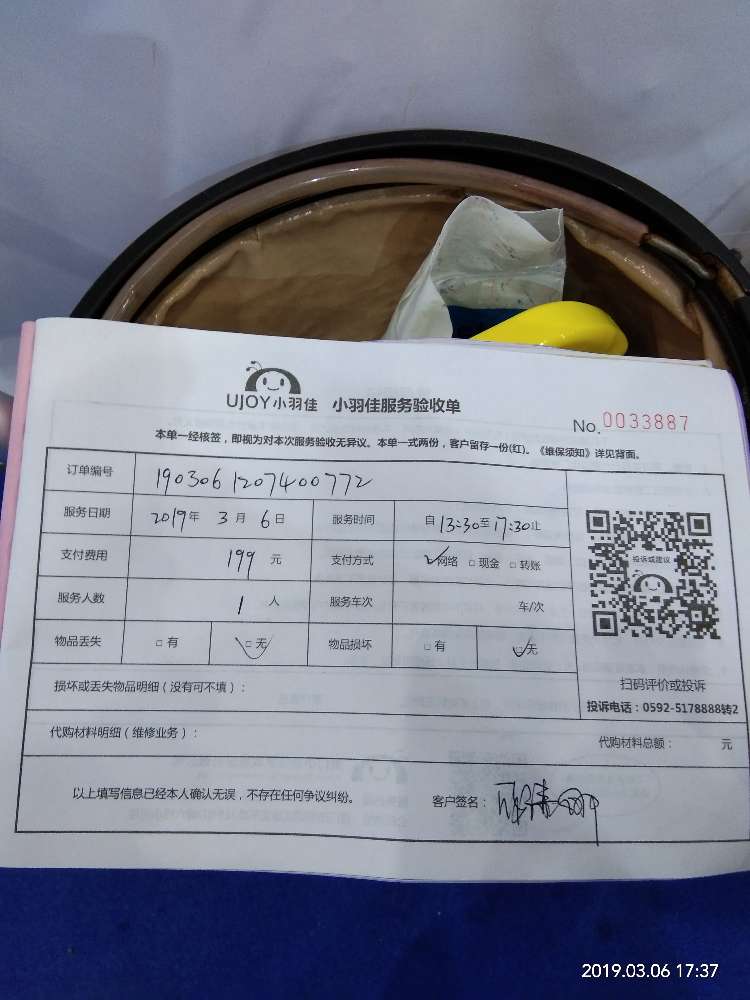 UJOY小羽佳 小羽佳服务验收单
No.0033887
本单一经核签，即视为对本次服务验收无异议。本单一式两份，客户留存一份(红)。《维保须知》详见背面。
订单编号 1903061207400772
服务日期 2019年3月6日 服务时间 自13:30至17:30止
投诉或建议
支付费用 199元 支付方式 网络 现金 转账
服务人数 1人 服务车次 车/次
物品丢失 有 无 物品损坏 有 无
扫码评价或投诉
损坏或丢失物品明细（没有可不填）：
投诉电话：0592-5178888转2
代购材料明细（维修业务）： 代购材料总额： 元
以上填写信息已经本人确认无误，不存在任何争议纠纷。 客户签名：
2019.03.06 17:37